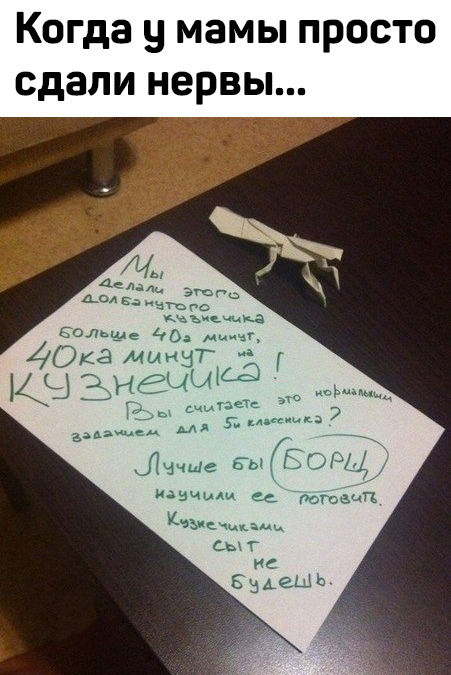 Когда у мамы просто
сдали нервы...
Мы
делали этого
долбанутого
кузнечика
больше 40а минут,
40ка минут на
КУЗНечика!
Вы считаете это нормальным
заданием для 5и классника?
Лучше бы БОРЩ
научили ее готовить.
Кузнечиками
сыт
не
будешь.